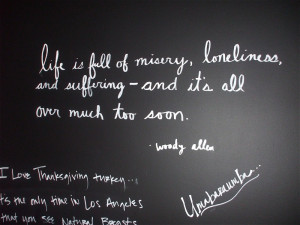 life is full of misery, loneliness,
and suffering - and it's all
over much too soon.
· woody allen
I Love Thanksgiving turkey...
it's the only time in Los Angeles
that you see Natural Breasts